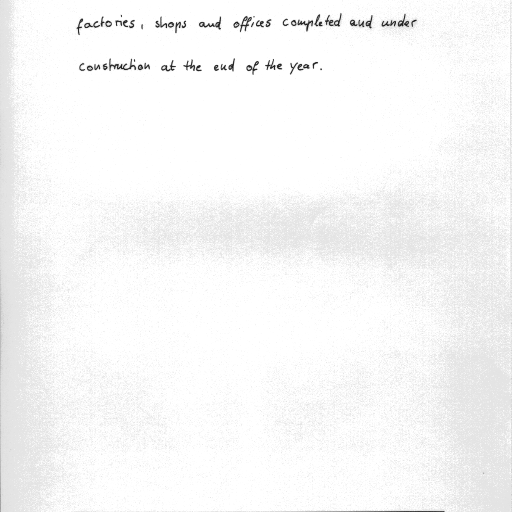 factories, shops and offices completed and under
construction at the end of the year.